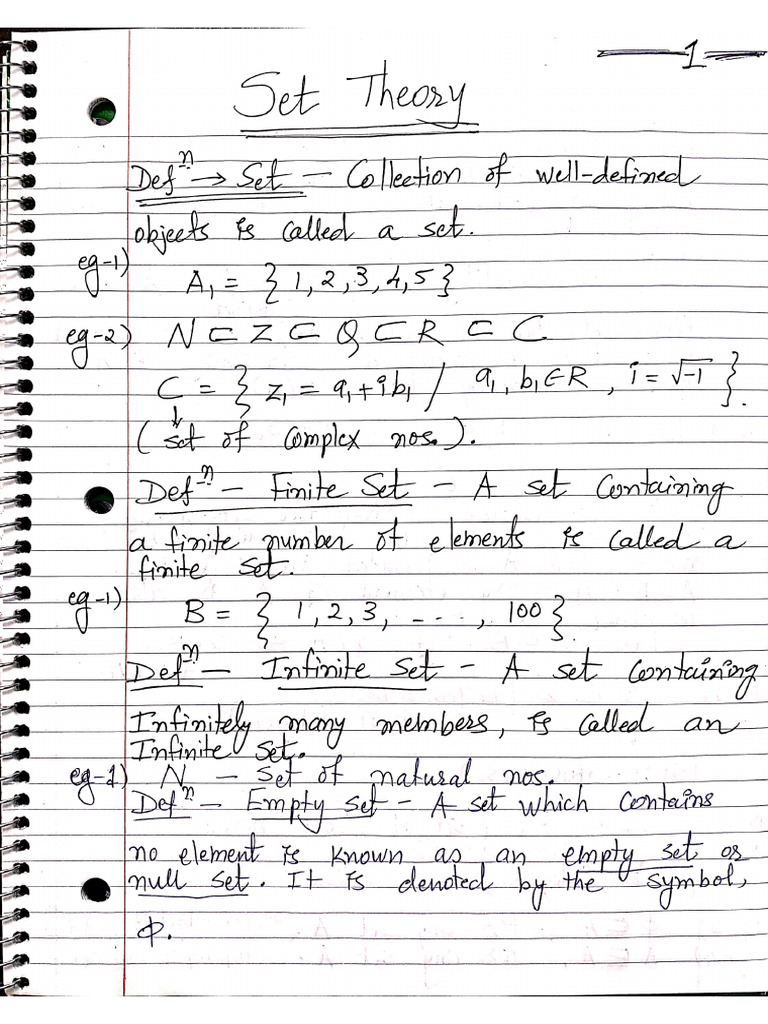 1
Set Theory
Defⁿ → Set - Collection of well-defined
objects is called a set.
eg-1) A₁ = {1, 2, 3, 4, 5}
eg-2) N ⊂ Z ⊂ Q ⊂ R ⊂ C
C = { z₁ = a₁+ib₁ / a₁, b₁ ∈ R , i = √-1 }.
↓
(set of complex nos.).
Defⁿ - Finite Set - A set containing
a finite number of elements is called a
finite set.
eg-1) B = { 1, 2, 3, - - - . , 100 }.
Defⁿ - Infinite Set - A set containing
Infinitely many members, is called an
Infinite set.
eg-1) N - set of natural nos.
Defⁿ - Empty set - A set which contains
no element is known as an empty set or
null set. It is denoted by the symbol,
ϕ.